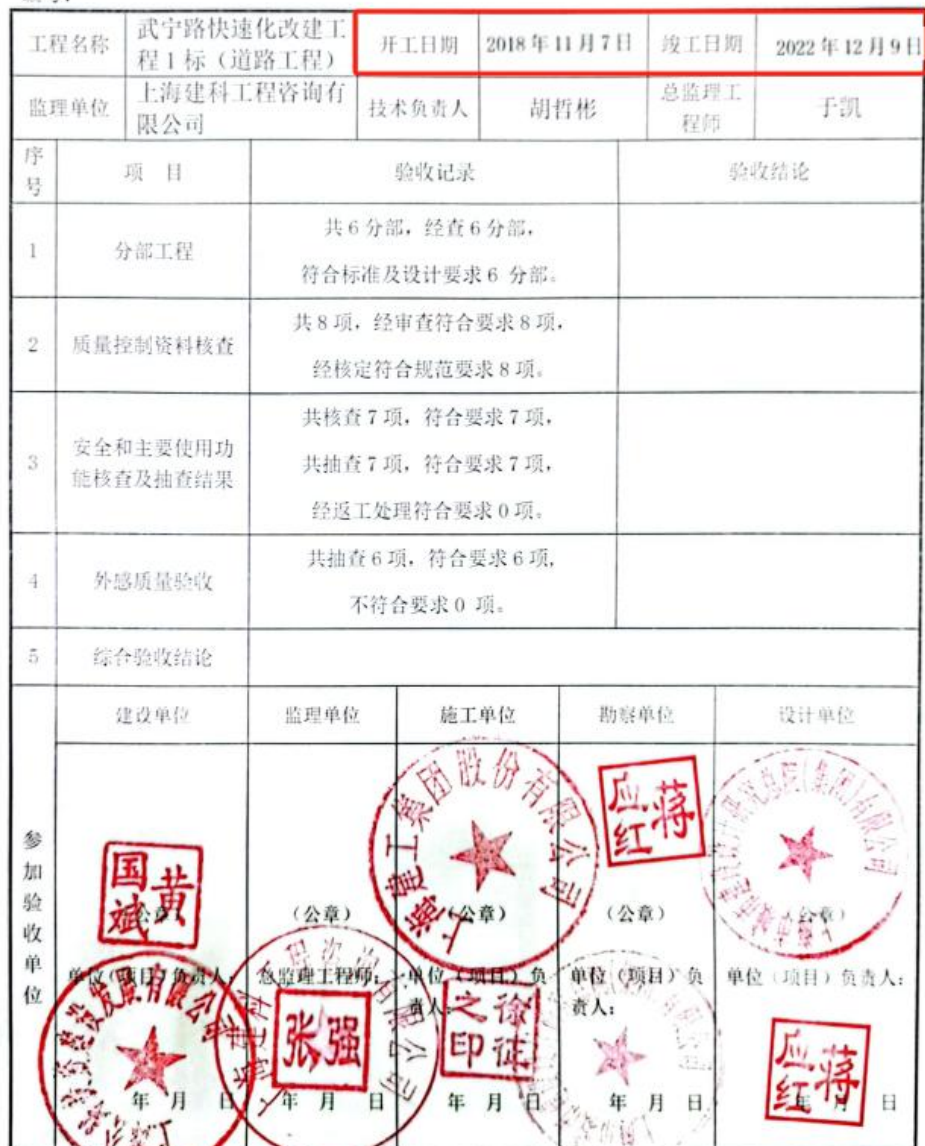 工程名称
武宁路快速化改建工
程1标（道路工程）
开工日期
2018年11月7日
竣工日期
2022年12月9日
监理单位
上海建科工程咨询有
限公司
技术负责人
胡哲彬
总监理工
程师
于凯
序
号
项 目
验收记录
验收结论
1
分部工程
共6分部，经查6分部，
符合标准及设计要求6 分部。
2
质量控制资料核查
共8项，经审查符合要求8项，
经核定符合规范要求8项。
3
安全和主要使用功
能核查及抽查结果
共核查7项，符合要求7项，
共抽查7项，符合要求7项，
经返工处理符合要求0项。
4
外感质量验收
共抽查6项，符合要求6项，
不符合要求0 项。
5
综合验收结论
参加验收单位
建设单位
监理单位
施工单位
勘察单位
设计单位
上海建工集团股份有限公司
应蒋
红
国黄
斌
（公章）
（公章）
（公章）
（公章）
（公章）
单位（项目）负责人：
总监理工程师：
单位（项目）负
责人：
单位（项目）负
责人：
单位（项目）负责人：
张强
之徐
印征
应蒋
红
年 月 日
年 月 日
年 月 日
年 月 日
年 月 日